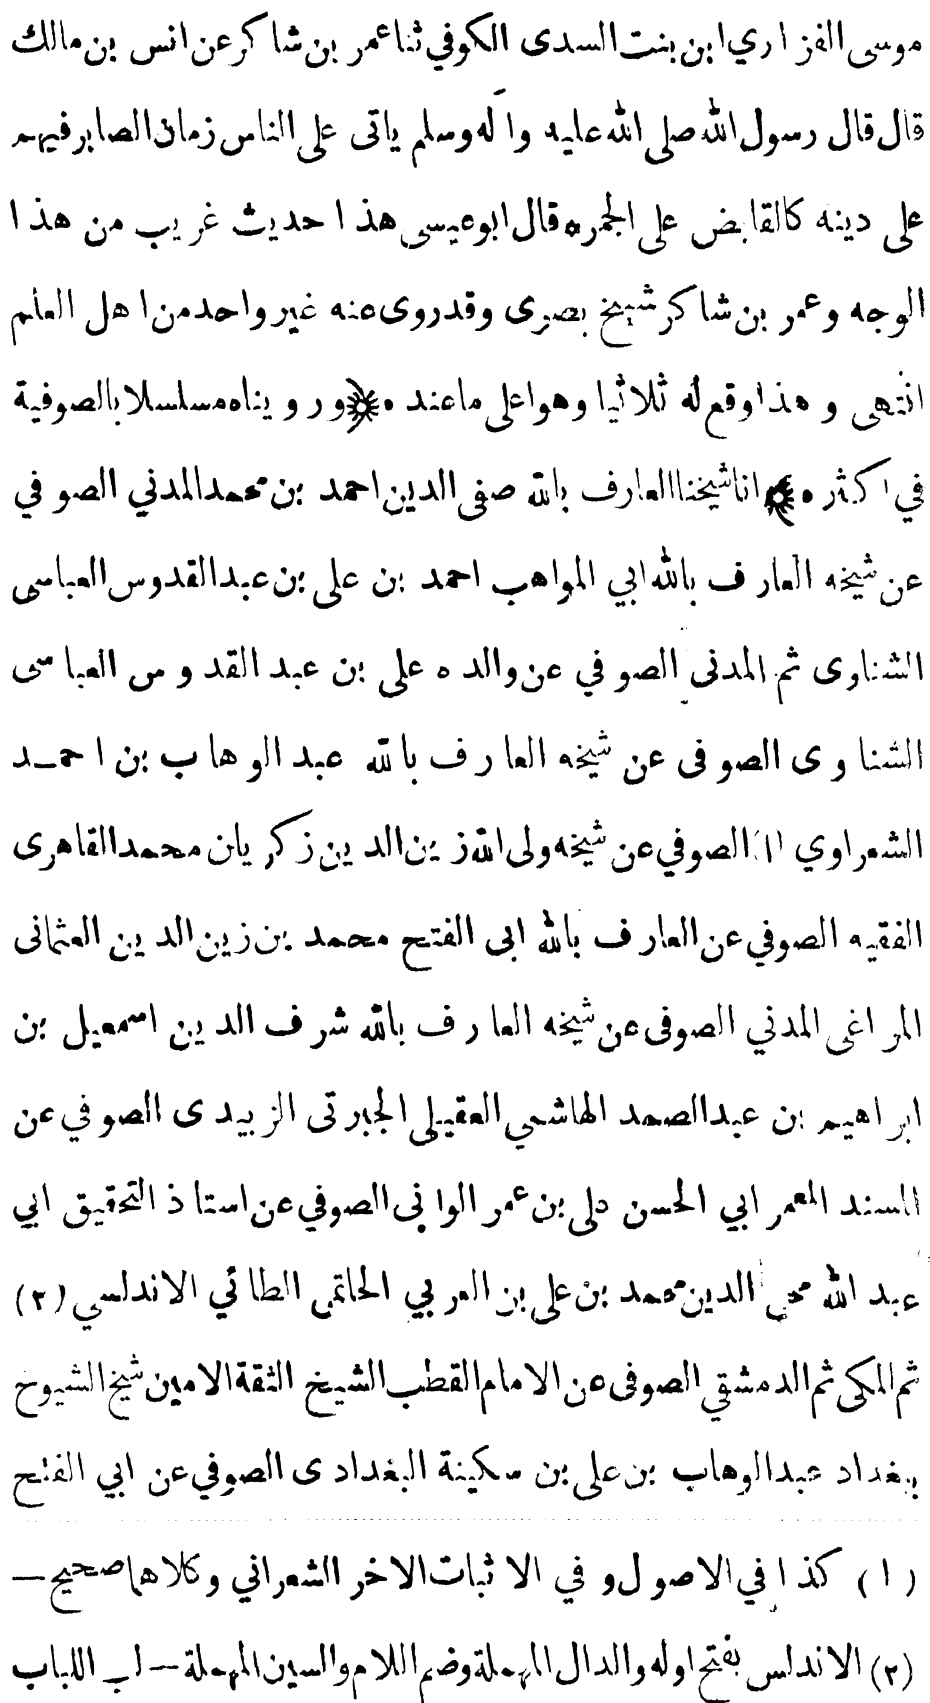 موسى الفزاري ابن بنت السدى الكوفي ثنا عمر بن شاكر عن انس بن مالك
قال قال رسول الله صلى الله عليه وآله وسلم ياتى على الناس زمان الصابر فيهم
على دينه كالقابض على الجمره قال ابو عيسى هذا حديث غريب من هذا
الوجه وعمر بن شاكر شيخ بصرى وقد روى عنه غير واحد من اهل العلم
انتهى وهذا وقع له ثلاثيا وهو اعلى ما عنده ورويناه مسلسلا بالصوفية
في اكثره انا شيخنا العارف بالله صفى الدين احمد بن محمد المدني الصوفي
عن شيخه العارف بالله ابي المواهب احمد بن على بن عبد القدوس العباسى
الشناوى ثم المدنى الصوفي عن والده على بن عبد القدوس العباسى
الشناوى الصوفى عن شيخه العارف بالله عبد الوهاب بن احمد
الشعراوي (١) الصوفي عن شيخه ولى الله زين الدين زكريا بن محمد القاهرى
الفقيه الصوفي عن العارف بالله ابى الفتح محمد بن زين الدين العثمانى
المراغى المدني الصوفى عن شيخه العارف بالله شرف الدين اسمعيل بن
ابراهيم بن عبد الصمد الهاشمي العقيلى الجبرتى الزبيدى الصوفي عن
المسند المعمر ابي الحسن على بن عمر الوانى الصوفي عن استاذ التحقيق ابي
عبد الله محى الدين محمد بن على بن العربي الحاتمى الطائي الاندلسي (٢)
ثم المكى ثم الدمشقي الصوفى عن الامام القطب الشيخ الثقة الامين شيخ الشيوخ
ببغداد عبد الوهاب بن على بن سكينة البغدادى الصوفي عن ابي الفتح
(١) كذا في الاصول و في الاثبات الاخر الشعراني وكلاهما صحيح —
(٢) الاندلس بفتح اوله والدال المهملة وضم اللام والسين المهملة — لب اللباب